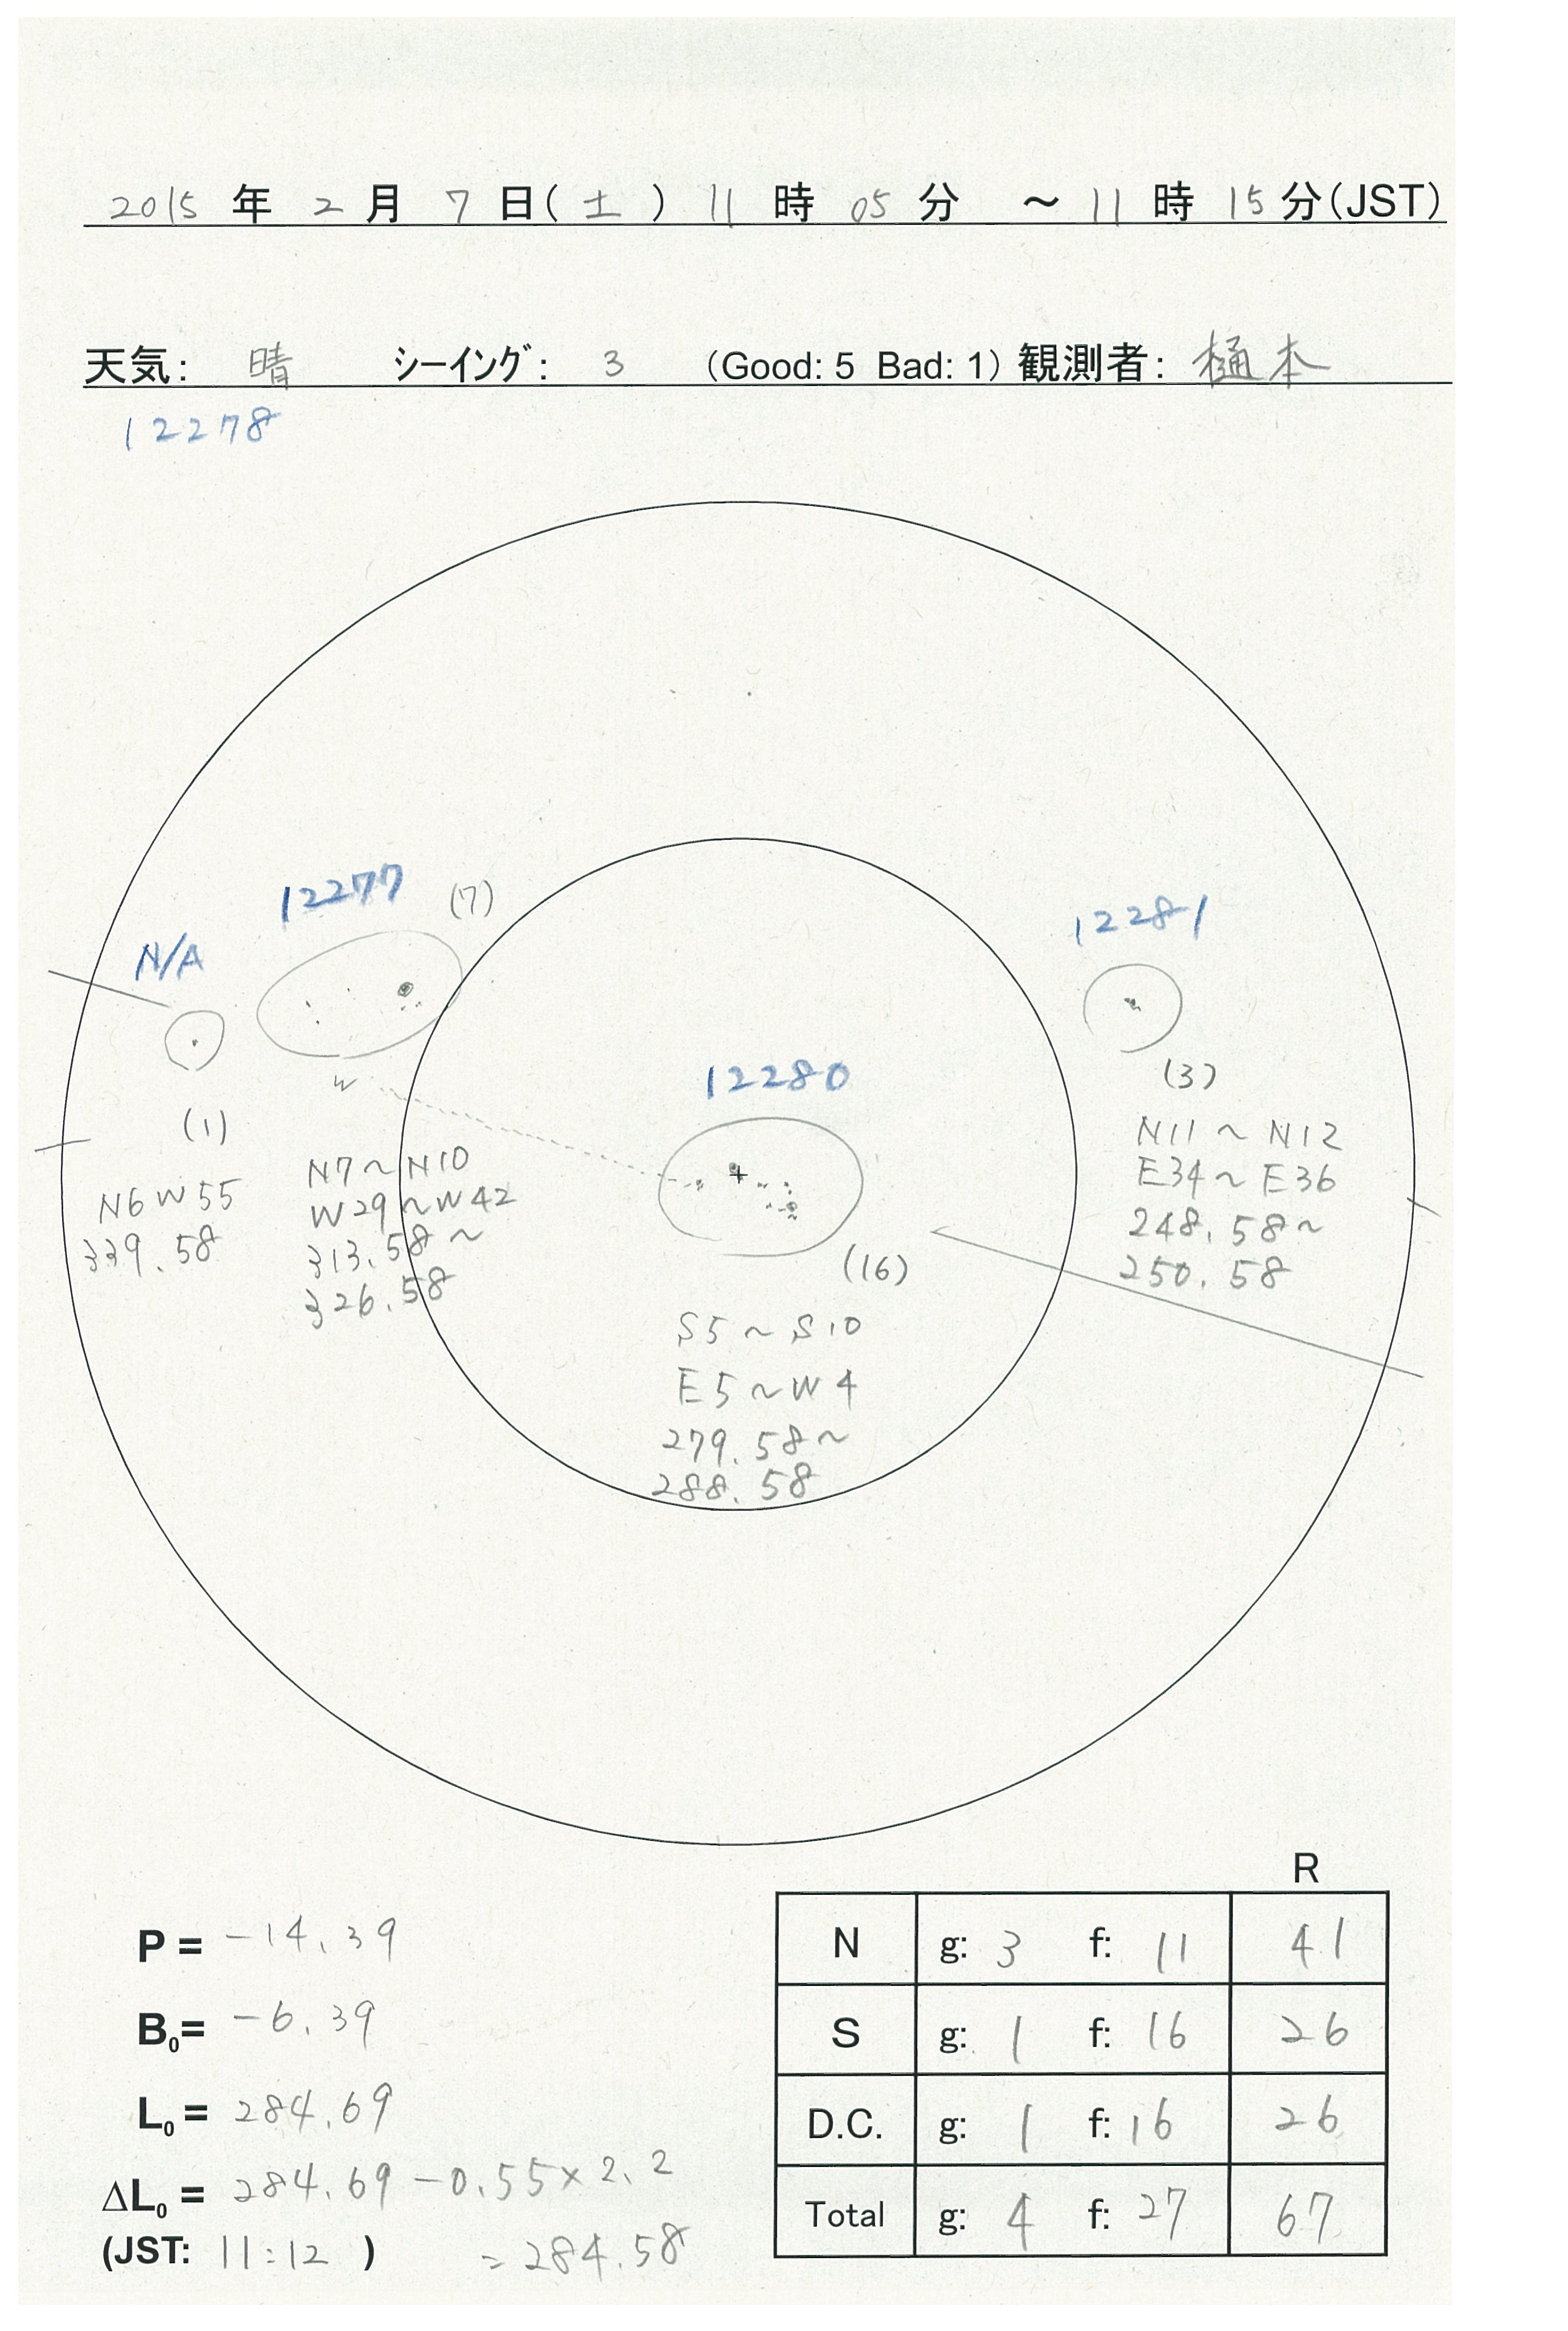 2015 年 2 月 7 日(土) 11 時 05 分 ～ 11 時 15 分(JST)
天気: 晴 シーイング: 3 (Good: 5 Bad: 1) 観測者: 樋本
12278
12277 (7)
12281
N/A
12280
W
(3)
(1)
N11～N12
E34～E36
248.58～
250.58
N7～N10
W29～W42
313.58～
326.58
N6W55
339.58
(16)
S5～S10
E5～W4
279.58～
288.58
R
P = -14.39
N g: 3 f: 11 41
B0= -6.39
S g: 1 f: 16 26
L0 = 284.69
D.C. g: 1 f: 16 26
ΔL0 = 284.69 - 0.55×2.2
Total g: 4 f: 27 67
(JST: 11:12 ) = 284.58